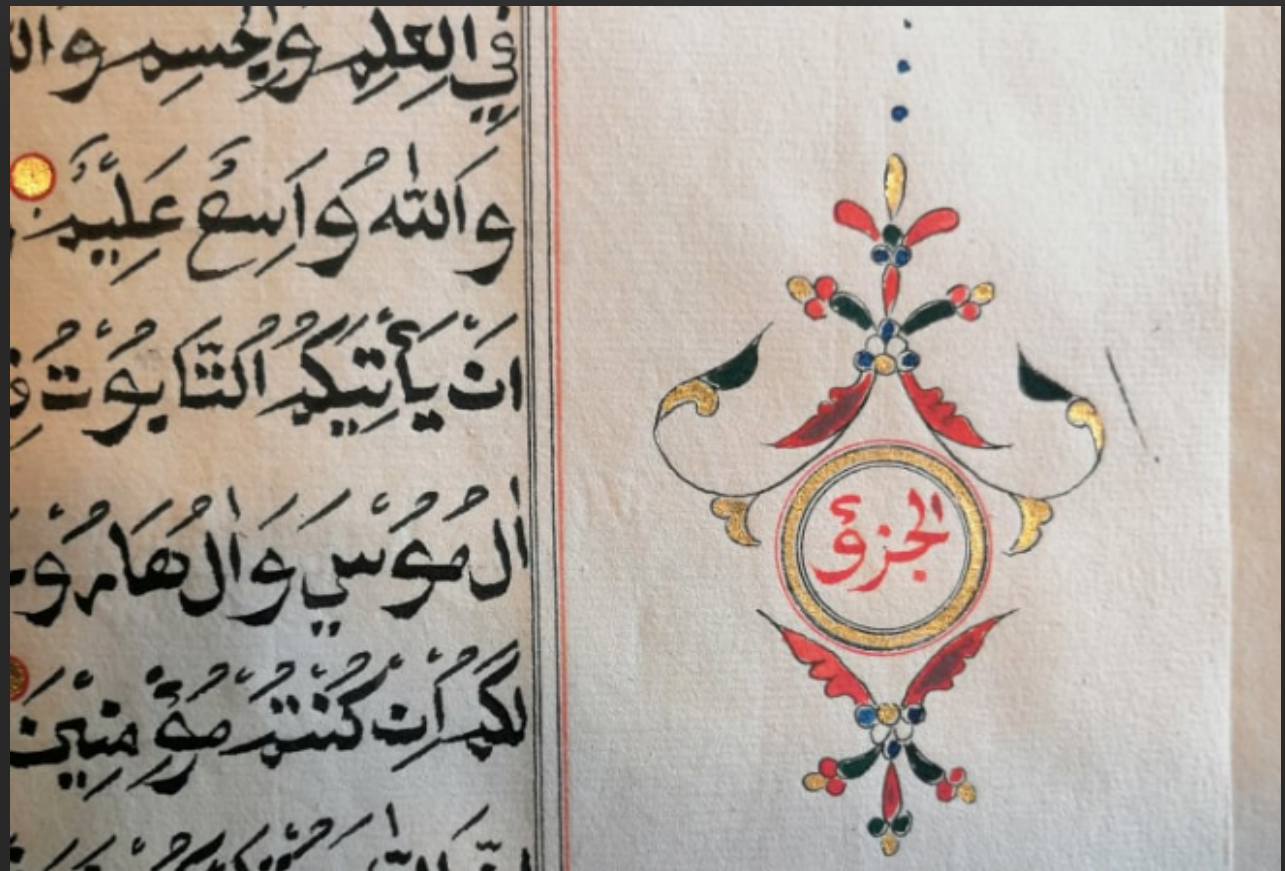 فِي الْعِلْمِ وَالْجِسْمِ
وَاللّٰهُ وَاسِعٌ عَلِيْمٌ
اَنْ يَأْتِيَكُمُ التَّابُوْتُ
اٰلُ مُوْسٰي وَاٰلُ هَارُوْ
لَكُمْ اِنْ كُنْتُمْ مُؤْمِنِيْنَ
الجزؤ